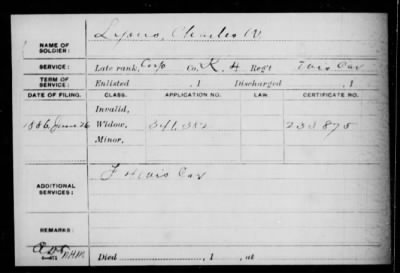 NAME OF SOLDIER: Lyons, Charles W.
SERVICE: Late rank, Corp Co. K, 4 Reg't Wis Cav
TERM OF SERVICE: Enlisted , 1 Discharged , 1
DATE OF FILING. CLASS. APPLICATION NO. LAW. CERTIFICATE NO.
Invalid,
1886 June 26 Widow, 341.352 233875
Minor,
ADDITIONAL SERVICES: F 4 Wis Cav
REMARKS:
Died , 1 , at